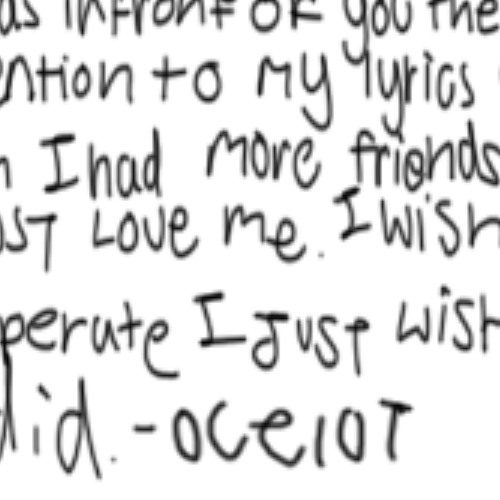 as infront of you the
ention to my lyrics
n I had more friends
ust Love me. I wish
perate I Just wish
did. -oceloT